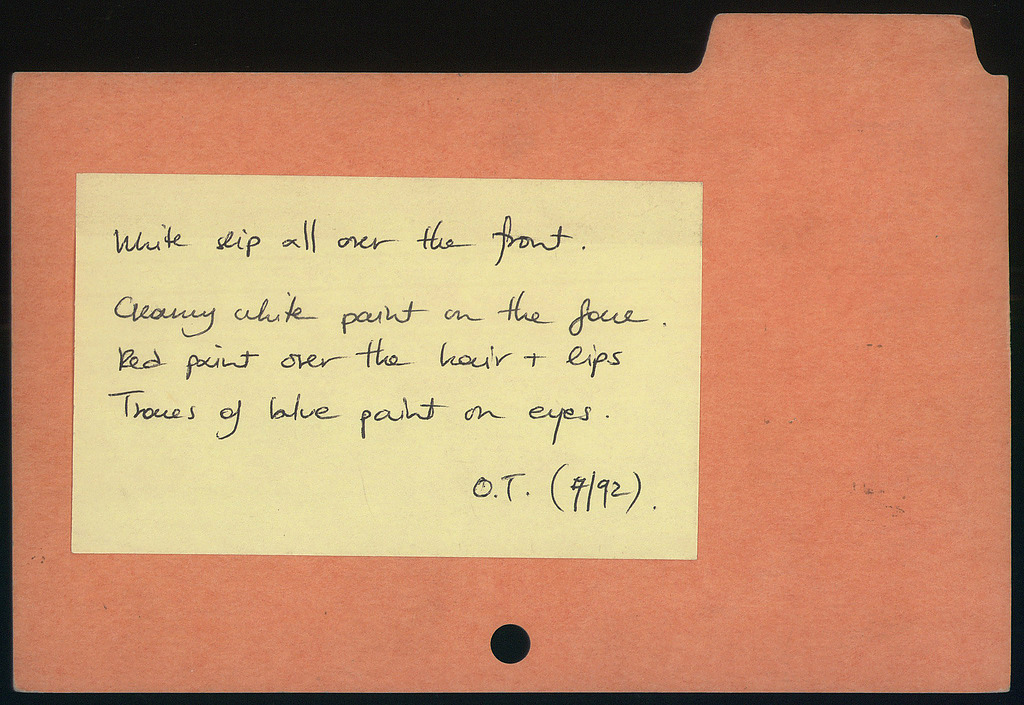 White slip all over the front.
Creamy white paint on the face.
Red paint over the hair + lips
Traces of blue paint on eyes.
O.T. (7/92).